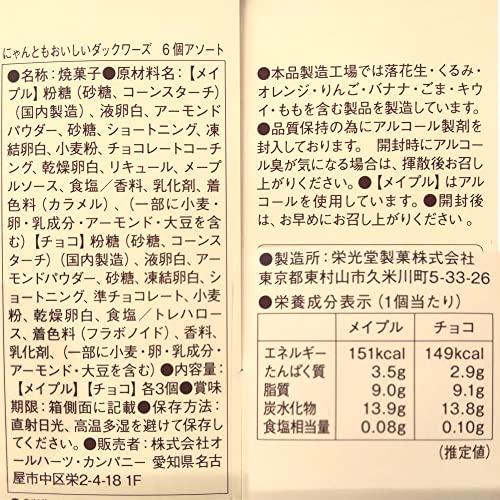 にゃんともおいしいダックワーズ 6個アソート
●名称：焼菓子●原材料名：【メイ
プル】粉糖（砂糖、コーンスターチ）
（国内製造）、液卵白、アーモンド
パウダー、砂糖、ショートニング、凍
結卵白、小麦粉、チョコレートコーチ
ング、乾燥卵白、リキュール、メープ
ルソース、食塩／香料、乳化剤、着
色料（カラメル）、（一部に小麦・
卵・乳成分・アーモンド・大豆を含
む）【チョコ】粉糖（砂糖、コーンス
ターチ）（国内製造）、液卵白、アー
モンドパウダー、砂糖、凍結卵白、シ
ョートニング、準チョコレート、小麦
粉、乾燥卵白、食塩／トレハロー
ス、着色料（フラボノイド）、香料、
乳化剤、（一部に小麦・卵・乳成分・
アーモンド・大豆を含む）●内容量：
【メイプル】【チョコ】各3個●賞味
期限：箱側面に記載●保存方法：
直射日光、高温多湿を避けて保存し
てください。●販売者：株式会社オ
ールハーツ・カンパニー 愛知県名古
屋市中区栄2-4-18 1F
●本品製造工場では落花生・くるみ・
オレンジ・りんご・バナナ・ごま・キウ
イ・ももを含む製品を製造しています。
●品質保持の為にアルコール製剤を
封入しております。 開封時にアルコー
ル臭が気になる場合は、揮散後お召し
上がりください。●【メイプル】はアル
コールを使用しています。●開封後
は、お早めにお召し上がりください。
●製造所：栄光堂製菓株式会社
東京都東村山市久米川町5-33-26
●栄養成分表示（1個当たり）
メイプル チョコ
エネルギー 151kcal 149kcal
たんぱく質 3.5g 2.9g
脂質 9.0g 9.1g
炭水化物 13.9g 13.8g
食塩相当量 0.08g 0.10g
（推定値）